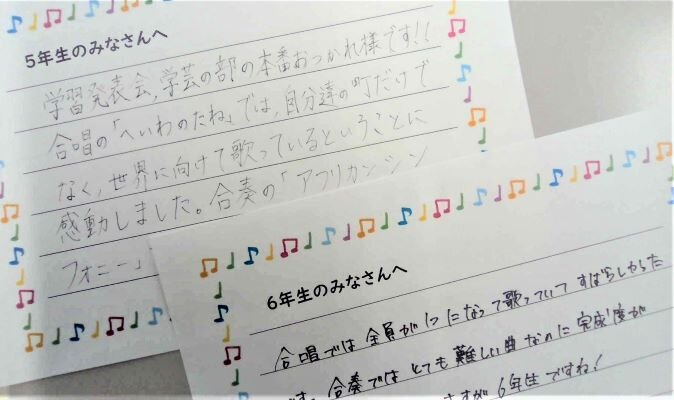 5年生のみなさんへ
学習発表会,学芸の部の本番おつかれ様です!!
合唱の「へいわのたね」では,自分達の町だけで
なく,世界に向けて歌っているということに
感動しました。合奏の「アフリカンシン
フォニー」
6年生のみなさんへ
合唱では全員が1つになって歌っていてすばらしかった
です。合奏ではとても難しい曲なのに完成度が
さすが6年生ですね!